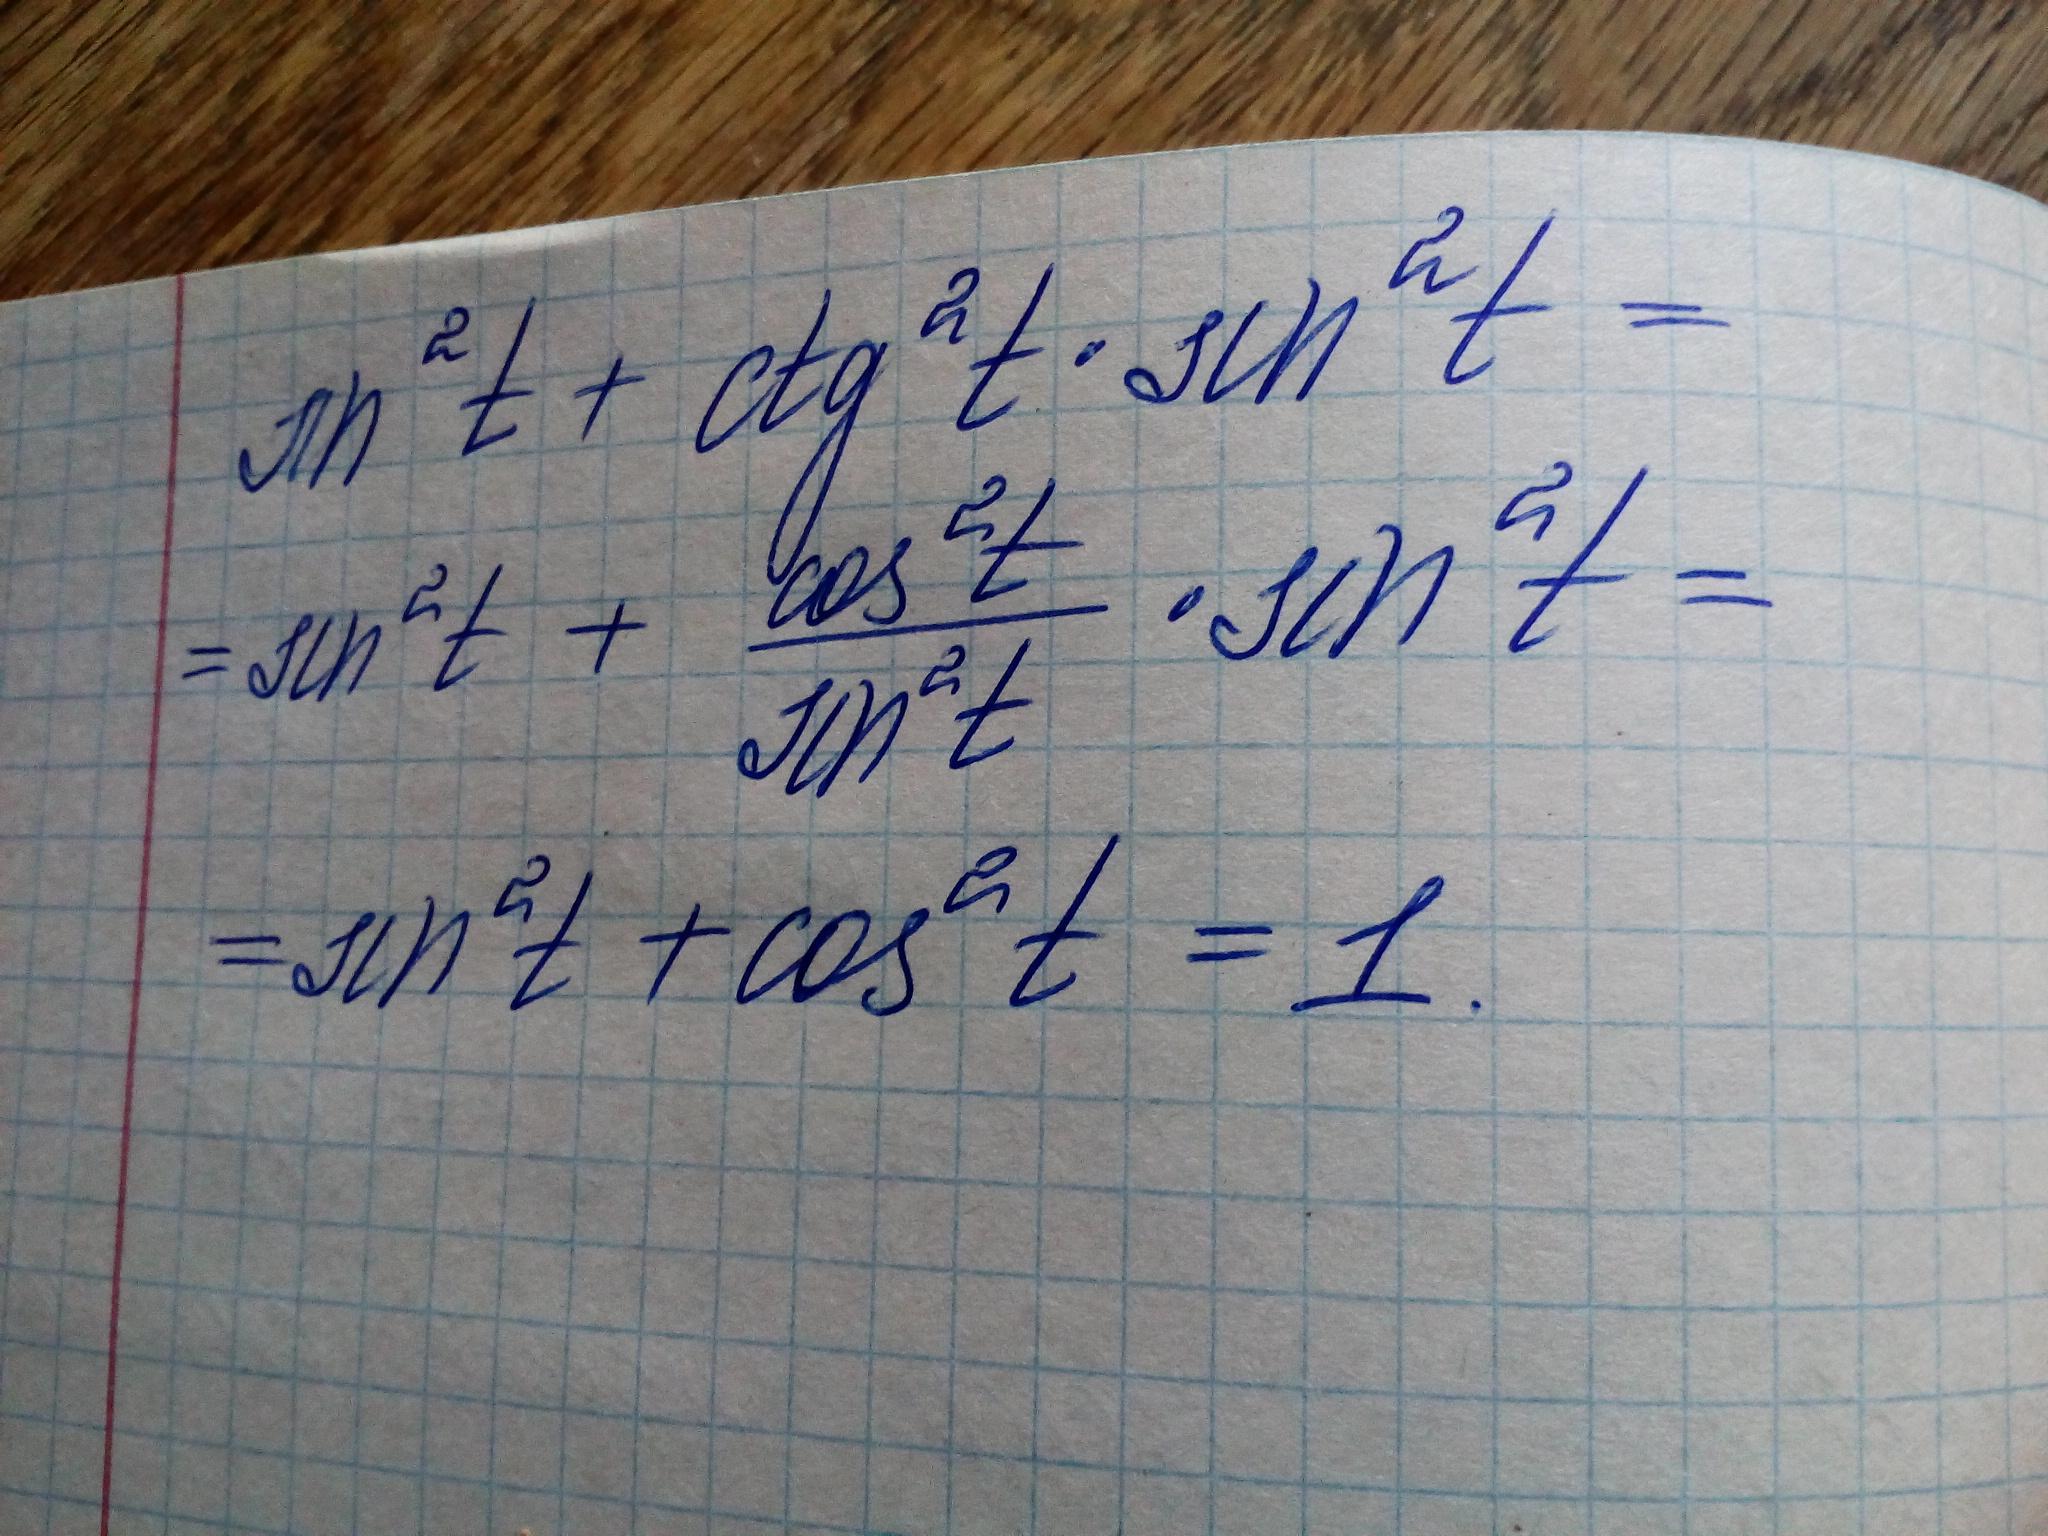 sin²t + ctg²t · sin²t =
= sin²t + cos²t/sin²t · sin²t =
= sin²t + cos²t = 1.